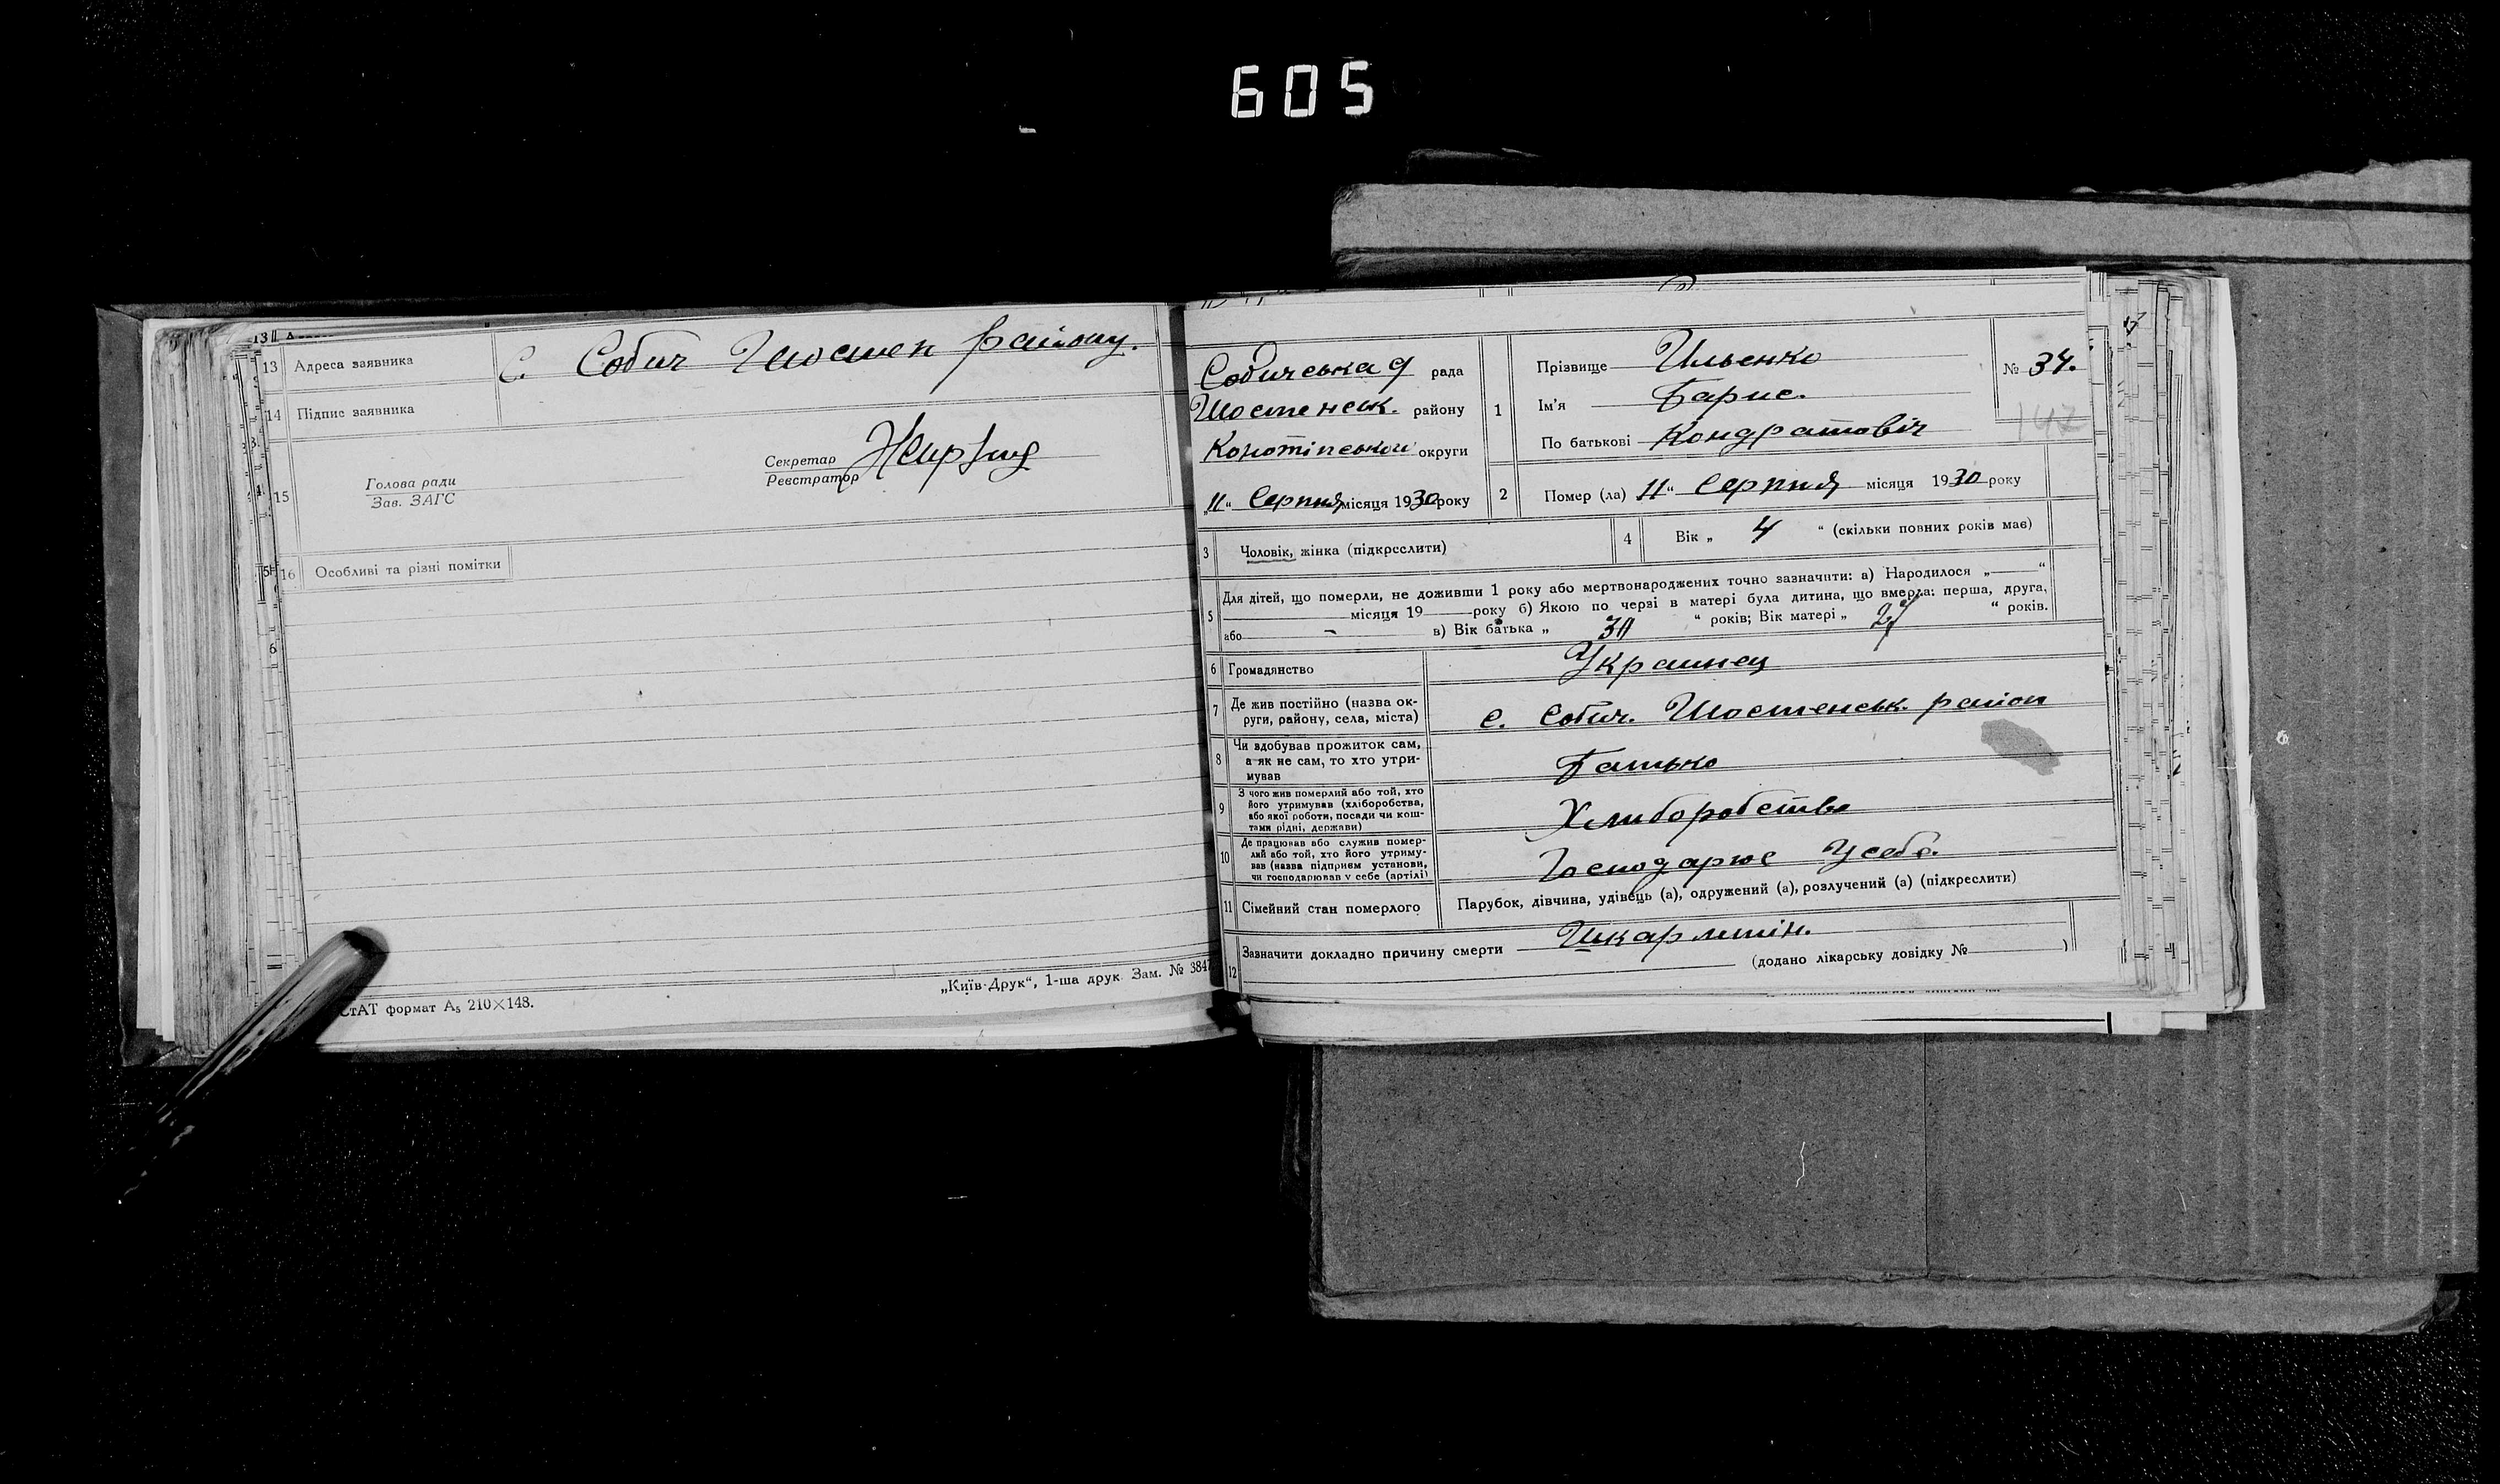 605
13 Адреса заявника С. Собич Шостен району.
14 Підпис заявника
15 Голова ради
Зав. ЗАГС
Секретар
Реєстратор
16 Особливі та різні помітки
СтАТ формат А5 210×148.
„Київ-Друк“, 1-ша друк Зам. № 384
Собичська рада
Шостенськ. району
Конотіпськой округи
„11“ Серпня місяця 1930 року
1 Прізвище Ильенко
Ім'я Барис.
По батькові Кондратовіч
№ 34.
147
2 Помер (ла) 11“ Серпня місяця 1930 року
3 Чоловік, жінка (підкреслити)
4 Вік „ 4 “ (скільки повних років має)
5 Для дітей, що померли, не доживши 1 року або мертвонароджених точно зазначити: а) Народилося „ “
місяця 19 року б) Якою по черзі в матері була дитина, що вмерла: перша, друга,
або в) Вік батька „ “ років; Вік матері „ “ років.
6 Громадянство Украинец
7 Де жив постійно (назва округи, району, села, міста) с. Собич. Шостенськ. раіон
8 Чи здобував прожиток сам,
а як не сам, то хто утри-
мував Батько
9 З чого жив померлий або той, хто
його утримував (хліборобства,
або якої роботи, посади чи кош-
тами рідні, держави) Хлиборобства
10 Де працював або служив помер-
лий або той, хто його утриму-
вав (назва підприєм установи,
чи господарював у себе (артілі) Господарює у себе.
11 Сімейний стан померлого Парубок, дівчина, удівець (а), одружений (а), розлучений (а) (підкреслити)
12 Зазначити докладно причину смерти Шкарлитін.
(додано лікарську довідку № )